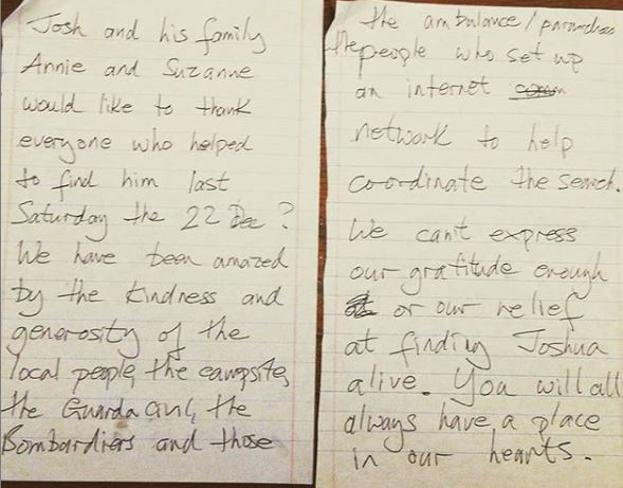 Josh and his family
Annie and Suzanne
would like to thank
everyone who helped
to find him last
Saturday the 22 Dec?
We have been amazed
by the kindness and
generosity of the
local people, the campsite,
the Guarda Civil, the
Bombardiers and those
the ambulance/paramedics
the people who set up
an internet
network to help
coordinate the search.
We can't express
our gratitude enough
or our relief
at finding Joshua
alive. You will all
always have a place
in our hearts.